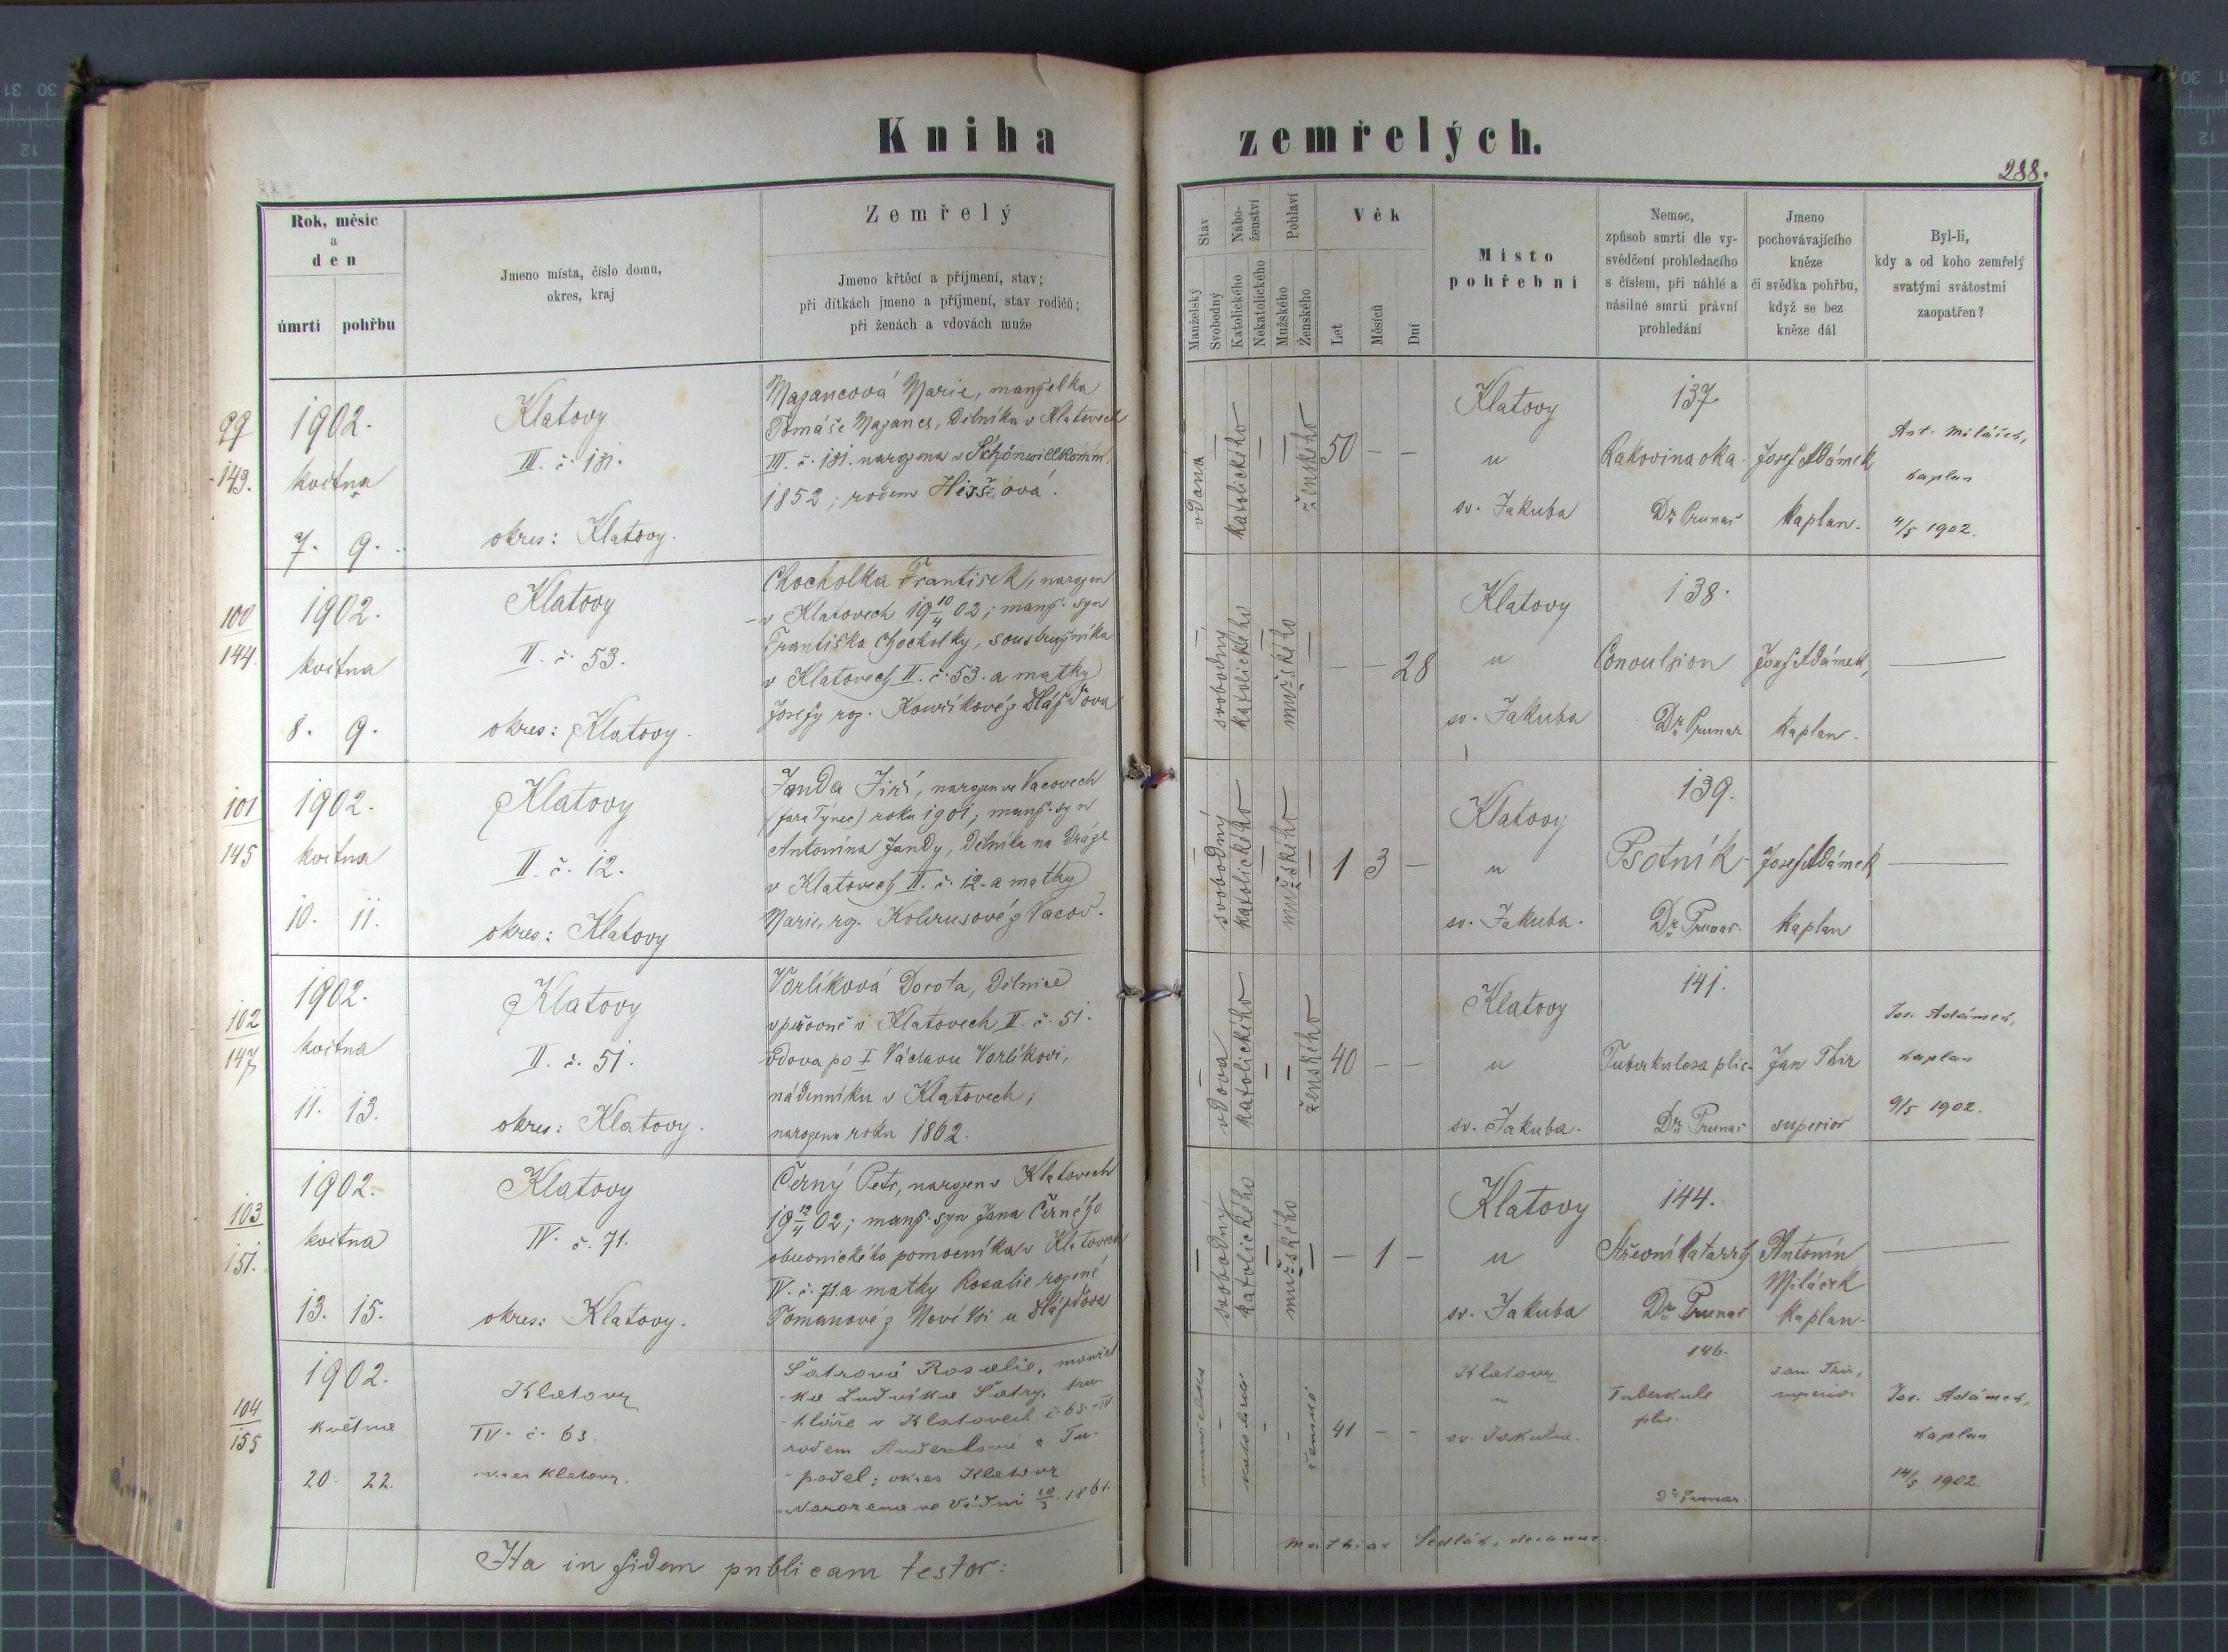 Kniha zemřelých.
288.
Rok, měsíc
a
den
úmrtí pohřbu
Jmeno místa, číslo domu,
okres, kraj
Zemřelý
Jmeno křtěcí a příjmení, stav;
při dítkách jmeno a příjmení, stav rodičů;
při ženách a vdovách muže
Stav
Manželský
Svobodný
Nábo-
ženství
Katolického
Nekatolického
Pohlaví
Mužského
Ženského
Věk
Let
Měsíců
Dní
Místo
pohřební
Nemoc,
způsob smrti dle vy-
svědčení prohledacího
s číslem, při náhlé a
násilné smrti právní
prohledání
Jmeno
pochovávajícího
kněze
či svědka pohřbu,
když se bez
kněze dál
Byl-li,
kdy a od koho zemřelý
svatými svátostmi
zaopatřen?
99
149.
1902.
května
7. 9.
Klatovy
III. č. 181.
okres: Klatovy.
Marie, manželka
Tomáše dělníka v Klatovech
III. č. 181. narozena v Schönwillkomm.
1852; rodem
vdaná
katolického
ženského
50 - -
Klatovy
u
sv. Jakuba
137.
Rakovina oka.
Dr. Prunar
Josef Adámek
kaplan.
Ant. Miláček,
kaplan
4/5 1902.
100
144.
1902.
května
8. 9.
Klatovy
II. č. 53.
okres: Klatovy.
Chocholka František, narozen
v Klatovech 19 10/4 02; manž. syn
Františka Chocholky, soustružníka
v Klatovech II. č. 53. a matky
Josefy roz. Kouříkové z
svobodný
katolického
mužského
- - 28
Klatovy
u
sv. Jakuba
138.
Convulsion
Dr. Prunar
Josef Adámek,
kaplan.
101
145
1902.
května
10. 11.
Klatovy
II. č. 12.
okres: Klatovy
Janda Jiří, narozen ve Vacovech
(fara Týnec) roku 1901; manž. syn
Antonína Jandy, dělníka na dráze
v Klatovech II. č. 12. a matky
Marie, roz. z Vacov.
svobodný
katolického
mužského
1 3 -
Klatovy
u
sv. Jakuba.
139.
Psotník.
Dr. Prunar.
Josef Adámek
kaplan
102
147
1902.
května
11. 13.
Klatovy
II. č. 51.
okres: Klatovy.
Vorlíková Dorota, dělnice
v Klatovech II. č. 51.
vdova po † Václavu Vorlíkovi,
nádenníku v Klatovech;
narozena roku 1862.
vdova
katolického
ženského
40 - -
Klatovy
u
sv. Jakuba.
141.
Tuberkulosa plic.
Dr. Prunar
Jan Thir
superior
Jos. Adámek,
kaplan
9/5 1902.
103
151.
1902.
května
13. 15.
Klatovy
IV. č. 71.
okres: Klatovy.
Černý Petr, narozen v Klatovech
19 12/4 02; manž. syn Jana Černého
obuvnického pomocníka v Klatovech
IV. č. 71. a matky Rosalie rozené
Tomanové z Nové Vsi u
svobodný
katolického
mužského
- 1 -
Klatovy
u
sv. Jakuba
144.
Střevní katarrh
Dr. Prunar
Antonín
Miláček
kaplan.
104
155
1902.
května
20. 22.
Klatovy
IV. č. 63.
okres Klatovy.
Šatrová Rosalie, manžel-
ka Ludvíka Šatry, tru-
hláře v Klatovech č. 63. IV
rodem z Tu-
padel; okres Klatovy
Narozena ve Vídni 10/3. 1861.
manželka
41 - -
Klatovy
u
sv. Jakuba.
146.
Tuberkule
plic.
Dr. Prunar.
Jan Thir,
superior
Jos. Adámek,
kaplan
14/5 1902.
Ita in fidem publicam testor:
Mathias Sedlák, decanus.